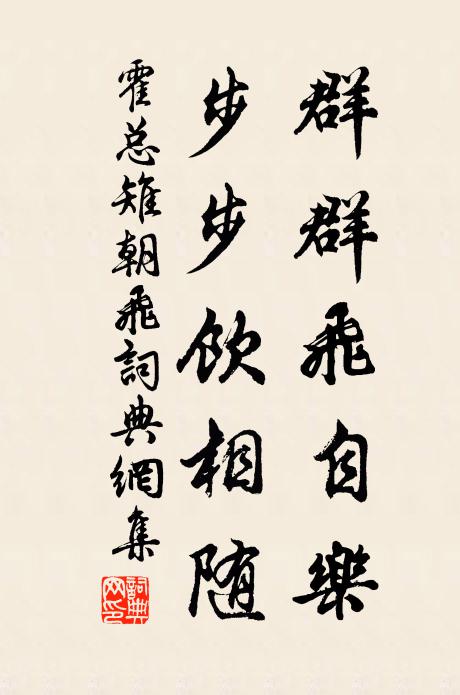 群群飛自樂
步步飲相随
霍总雉朝飛詞典網集
詞典网印